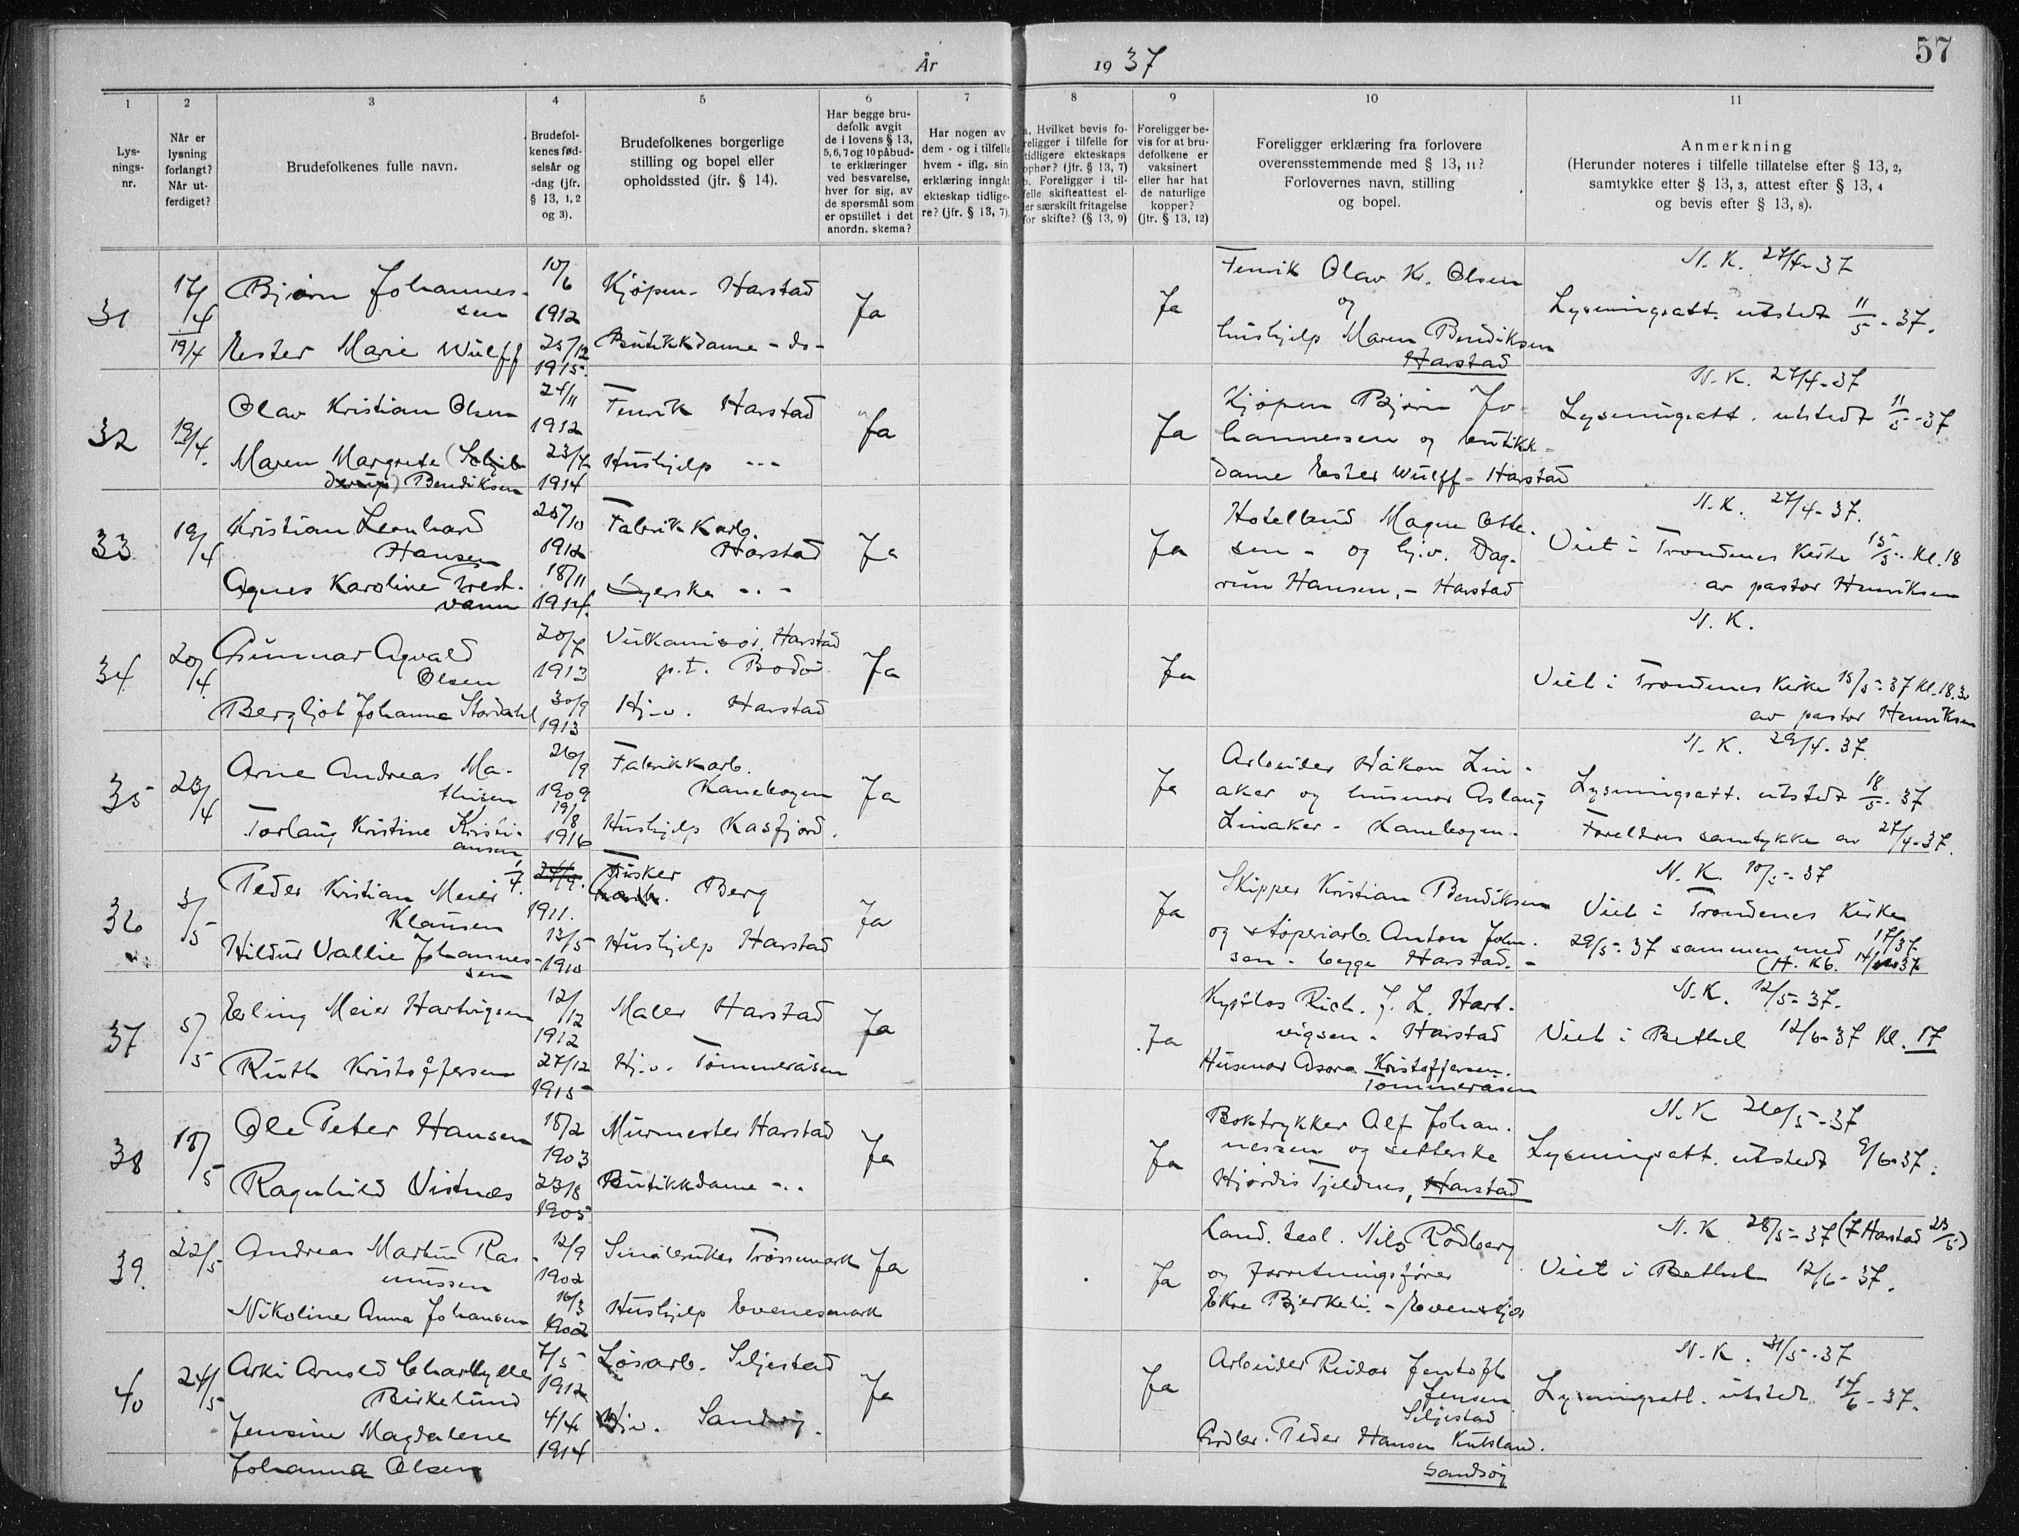 57
År 1937
1 2 3 4 5 6 7 8 9 10 11
Lys-
nings-
nr.
Når er
lysning
forlangt?
Når ut-
ferdiget?
Brudefolkenes fulle navn.
Brudefol-
kenes fød-
selsår og
-dag (jfr.
§ 13, 1, 2
og 3).
Brudefolkenes borgerlige
stilling og bopel eller
opholdssted (jfr. § 14).
Har begge bru-
defolk avgit
de i lovens § 13,
5, 6, 7 og 10 påbud-
te erklæringer
ved besvarelse,
hver for sig, av
de spørsmål som
er opstillet i det
anordn. skema?
Har nogen av
dem - og i tilfelle
hvem - iflg. sin
erklæring inngåt
ekteskap tidlige-
re? (jfr. § 13, 7).
a. Hvilket bevis fo-
religger i tilfelle for
tidligere ekteskaps
ophør? (jfr. § 13, 7)
b. Foreligger i til-
felle skifteattest el-
ler særskilt fritagelse
for skifte? (§ 13, 9)
Foreligger be-
vis for at bru-
defolkene er
vaksinert
eller har hat
de naturlige
kopper?
(jfr. § 13, 12)
Foreligger erklæring fra forlovere
overensstemmende med § 13, 11?
Forlovernes navn, stilling
og bopel.
Anmerkning
(Herunder noteres i tilfelle tillatelse efter § 13, 2,
samtykke efter § 13, 3, attest efter § 13, 4
og bevis efter § 13, 8).
31
17/4
19/4
Bjørn Johannes-
sen
Ester Marie Wulff
10/6
1912
25/12
1915.
Kjøpm. Harstad
Butikkdame - do -
Ja
Ja
Fenrik Olav K. Olsen
og
hushjelp Maren Bendiksen
Harstad
N. K. 27/4-37
Lysningsatt. utstedt 11/5 - 37.
32
19/4.
Olav Kristian Olsen
Maren Margrete (Schjel-
derup) Bendiksen
24/11
1912
23/4
1914
Fenrik Harstad
Hushjelp - - -
Ja
Ja
Kjøpm Bjørn Jo-
hannessen og butikk-
dame Ester Wulff - Harstad
N. K. 27/4-37
Lysningsatt. utstedt 11/5 - 37
33
19/4
Kristian Leonhard
Hansen
Agnes Karoline Trest-
vann
25/10
1912
18/11
1914.
Fabrikkarb.
Harstad
Syerske - . -
Ja
Ja
Hotellbud Magne Otte-
sen - og hj.v. Dag-
run Hansen, - Harstad
N. K. 27/4-37.
Viet i Trondenes Kirke 15/5 - Kl. 18
av pastor Henriksen
34
20/4
Gunnar Agvald
Olsen
Bergljot Johanna Stordahl
20/7
1913
30/9
1913
Vulkanisør, Harstad
p.t. Bodø
Hj.v. Harstad
Ja
Ja
N. K.
Viet i Trondenes Kirke 15/5-37 Kl. 18.30
av pastor Henriksen
35
23/4
Arne Andreas Ma-
thisen
Torlaug Kristine Kristi-
ansen
26/9
1909
19/8
1916
Fabrikkarb.
Kanebogen
Hushjelp Kasfjord.
Ja
Ja
Arbeider Håkon Lin-
aker og husmor Aslaug
Linaker - Kanebogen -
N. K. 29/4-37.
Lysningsatt. utstedt 18/5 - 37
Foreldres samtykke av 27/4-37.
36
3/5
Peder Kristian Meier
Klausen
Hildur Vallie Johannes-
sen
1/4.
24/9.
1911.
13/5
1910
Fisker
Berg
Hushjelp Harstad
Ja
Ja
Skipper Kristian Bendiksen
og støperiarb. Anton John-
sen - begge Harstad. -
N. K. 10/5-37
Viet i Trondenes Kirke
29/5-37 sammen med 17/37.
37
5/5
Erling Meier Hartvigsen
Ruth Kristoffersen
12/12
1912
27/12
1915
Maler Harstad
Hj.v. Tømmeråsen
Ja
Ja
Kystlos Rich. J. L. Hart-
vigsen - Harstad
Husmor Asora Kristoffersen.
Tømmeråsen
N. K. 12/5-37.
Viet i Bethel 12/6-37 Kl. 17
38
18/5
Ole Peter Hansen
Ragnhild Vistnæs
18/2
1903
23/8
1905
Murmester Harstad
Butikkdame - . .
Ja
Ja
Boktrykker Alf Johan-
nessen og setterske
Hjørdis Tjeldnes, Harstad
N. K 26/5-37
Lysningsatt. utstedt 9/6-37.
39
22/5
Andreas Martin Ras-
mussen
Nikoline Anna Johansen
12/9
1902
16/3
1902
Småbruker Trøssemark
Hushjelp Evenesmark
Ja
Ja
Cand. teol. Nils Rödberg
og forretningsfører
Ekre Bjerkeli - Evenskjer
N. K. 28/5-37 (7 Harstad 23/5)
Viet i Bethel 12/6-37.
40
24/5
Arki Arnold Charkylle
Birkelund
Jensine Magdalene
Johanna Olsen
7/5
1912
4/4
1914
Løsarb. Seljestad
Hj.v. Sandsøy.
Ja
Ja
Arbeider Reidar Jentoft
Jensen
Seljestad
Grdbr. Peder Hansen Kulsland.
Sandsøy
N. K. 31/5-37
Lysningsatt. utstedt 14/6 - 37.